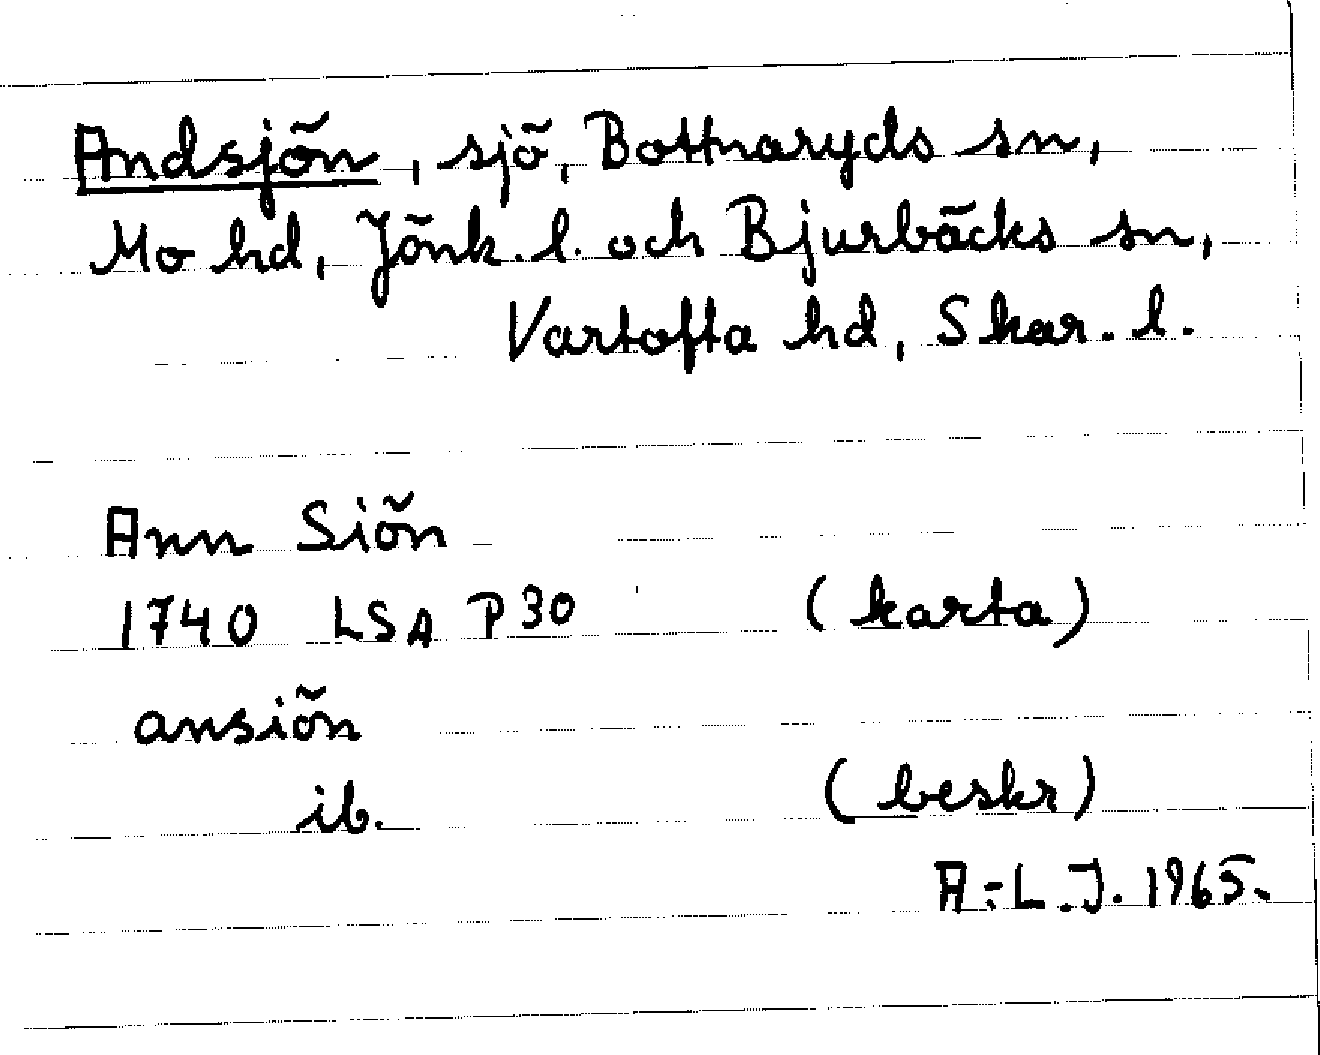 Andsjön, sjö, Bottnaryds sn,
Mo hd, Jönk. l. och Bjurbäcks sn,
Vartofta hd, Skar. l.
Ann Siön
1740 LSA P30 (karta)
ansiön
ib. (beskr)
A-L.J. 1965.